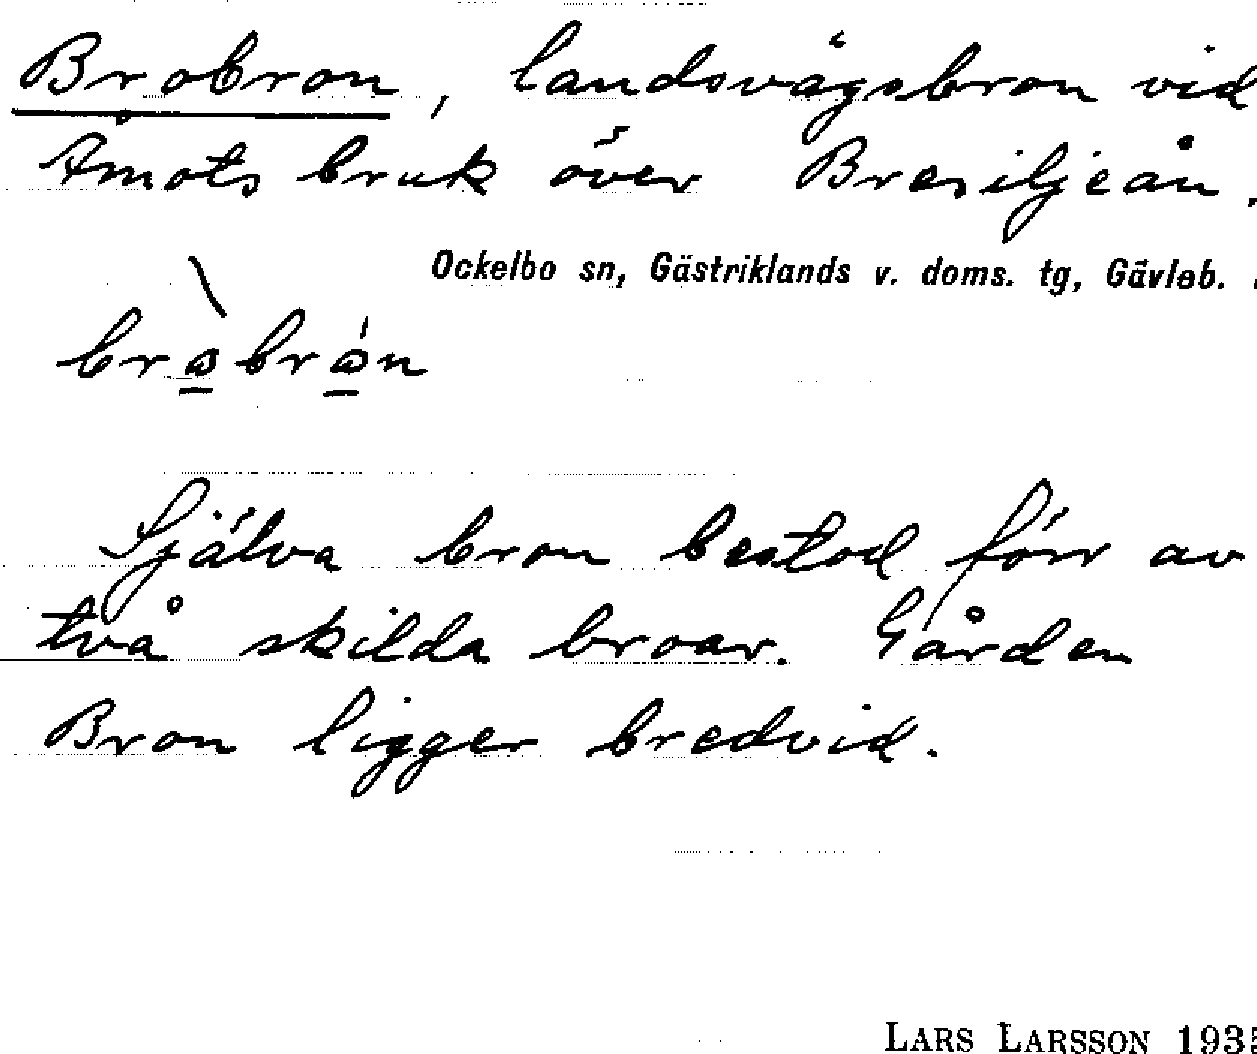 Brobron, landsvägsbron vid
Åmots bruk över Bresiljeån.
Ockelbo sn, Gästriklands v. doms. tg, Gävleb.
Själva bron bestod förr av
två skilda broar. Gården
Bron ligger bredvid.
LARS LARSSON 1935